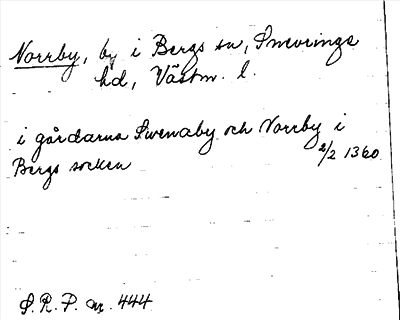 Norrby, by i Bergs sn, Snevringe
hd, Västm. l.
i gårdarna Swenaby och Norrby i
Bergs socken 2/2 1360
S.R.P. nr. 444